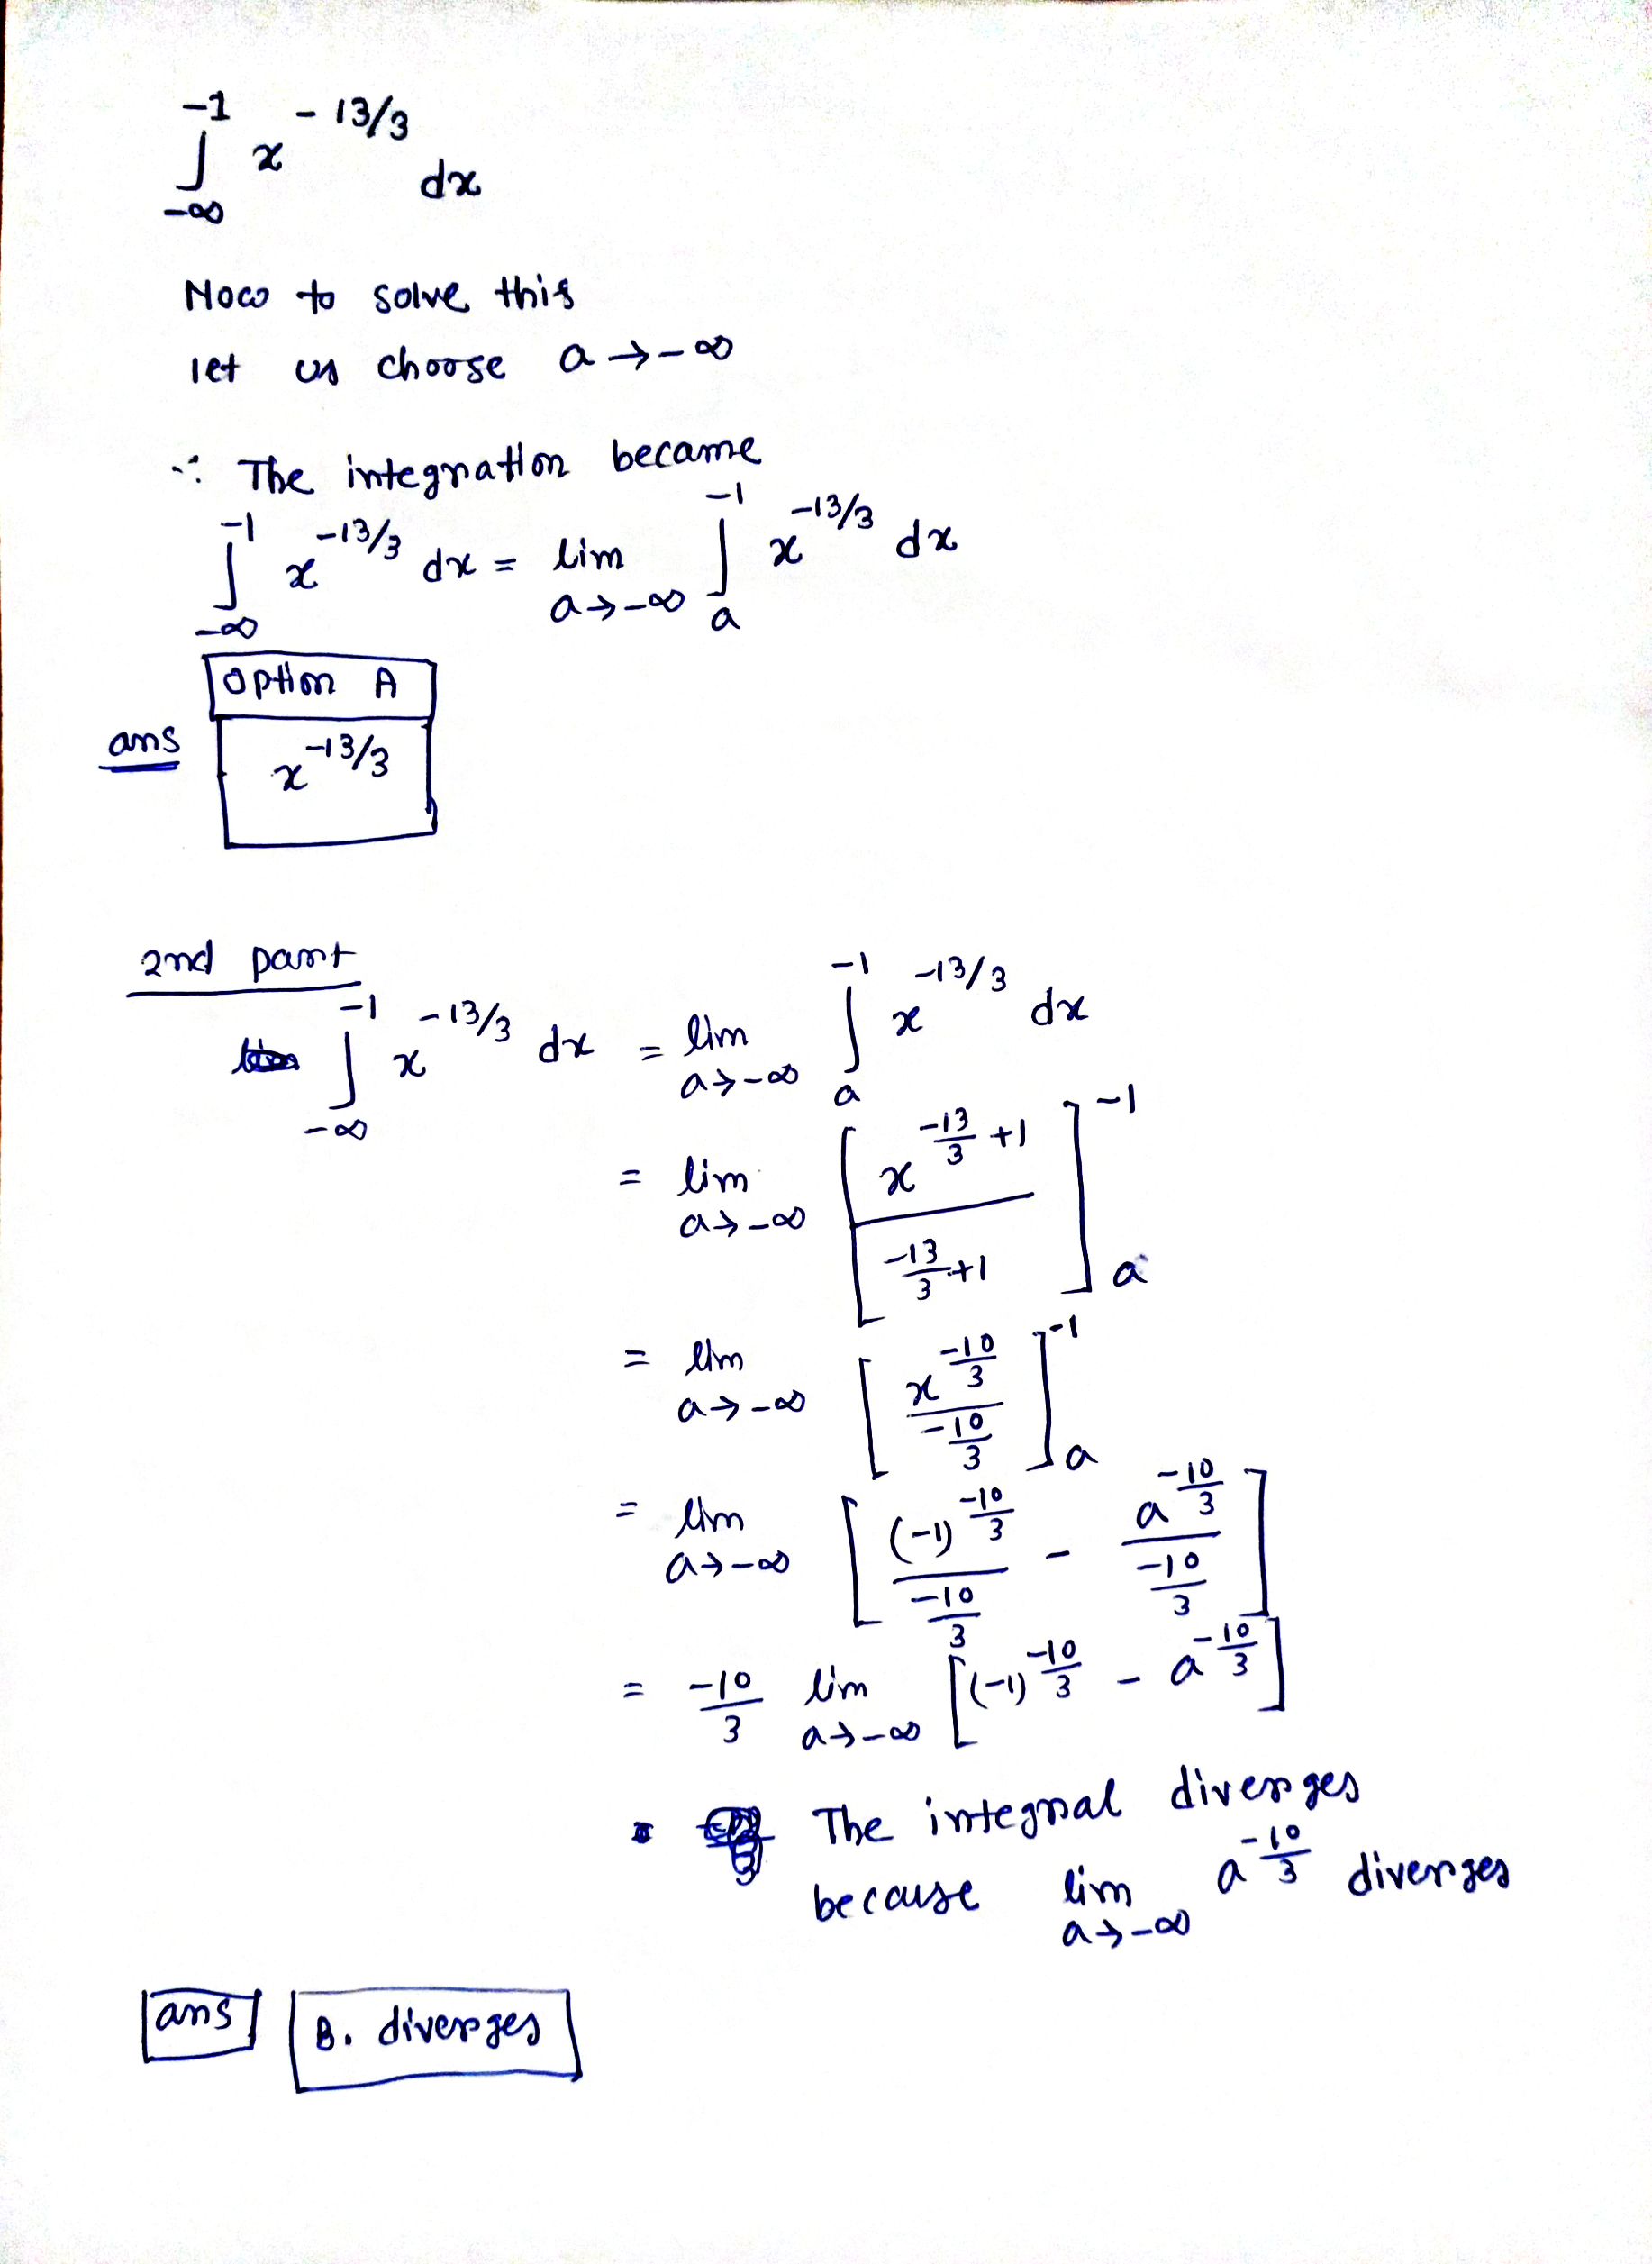 ∫_{-∞}^{-1} x^{-13/3} dx
Now to solve this
let us choose a → -∞
∴ The integration became
∫_{-∞}^{-1} x^{-13/3} dx = lim_{a→-∞} ∫_{a}^{-1} x^{-13/3} dx
Option A
ans x^{-13/3}
2nd part
∫_{-∞}^{-1} x^{-13/3} dx = lim_{a→-∞} ∫_{a}^{-1} x^{-13/3} dx
= lim_{a→-∞} [ x^{-13/3 +1} / (-13/3 +1) ]_{a}^{-1}
= lim_{a→-∞} [ x^{-10/3} / (-10/3) ]_{a}^{-1}
= lim_{a→-∞} [ (-1)^{-10/3} / (-10/3) - a^{-10/3} / (-10/3) ]
= -10/3 lim_{a→-∞} [ (-1)^{-10/3} - a^{-10/3} ]
The integral diverges
because lim_{a→-∞} a^{-10/3} diverges
ans B. diverges